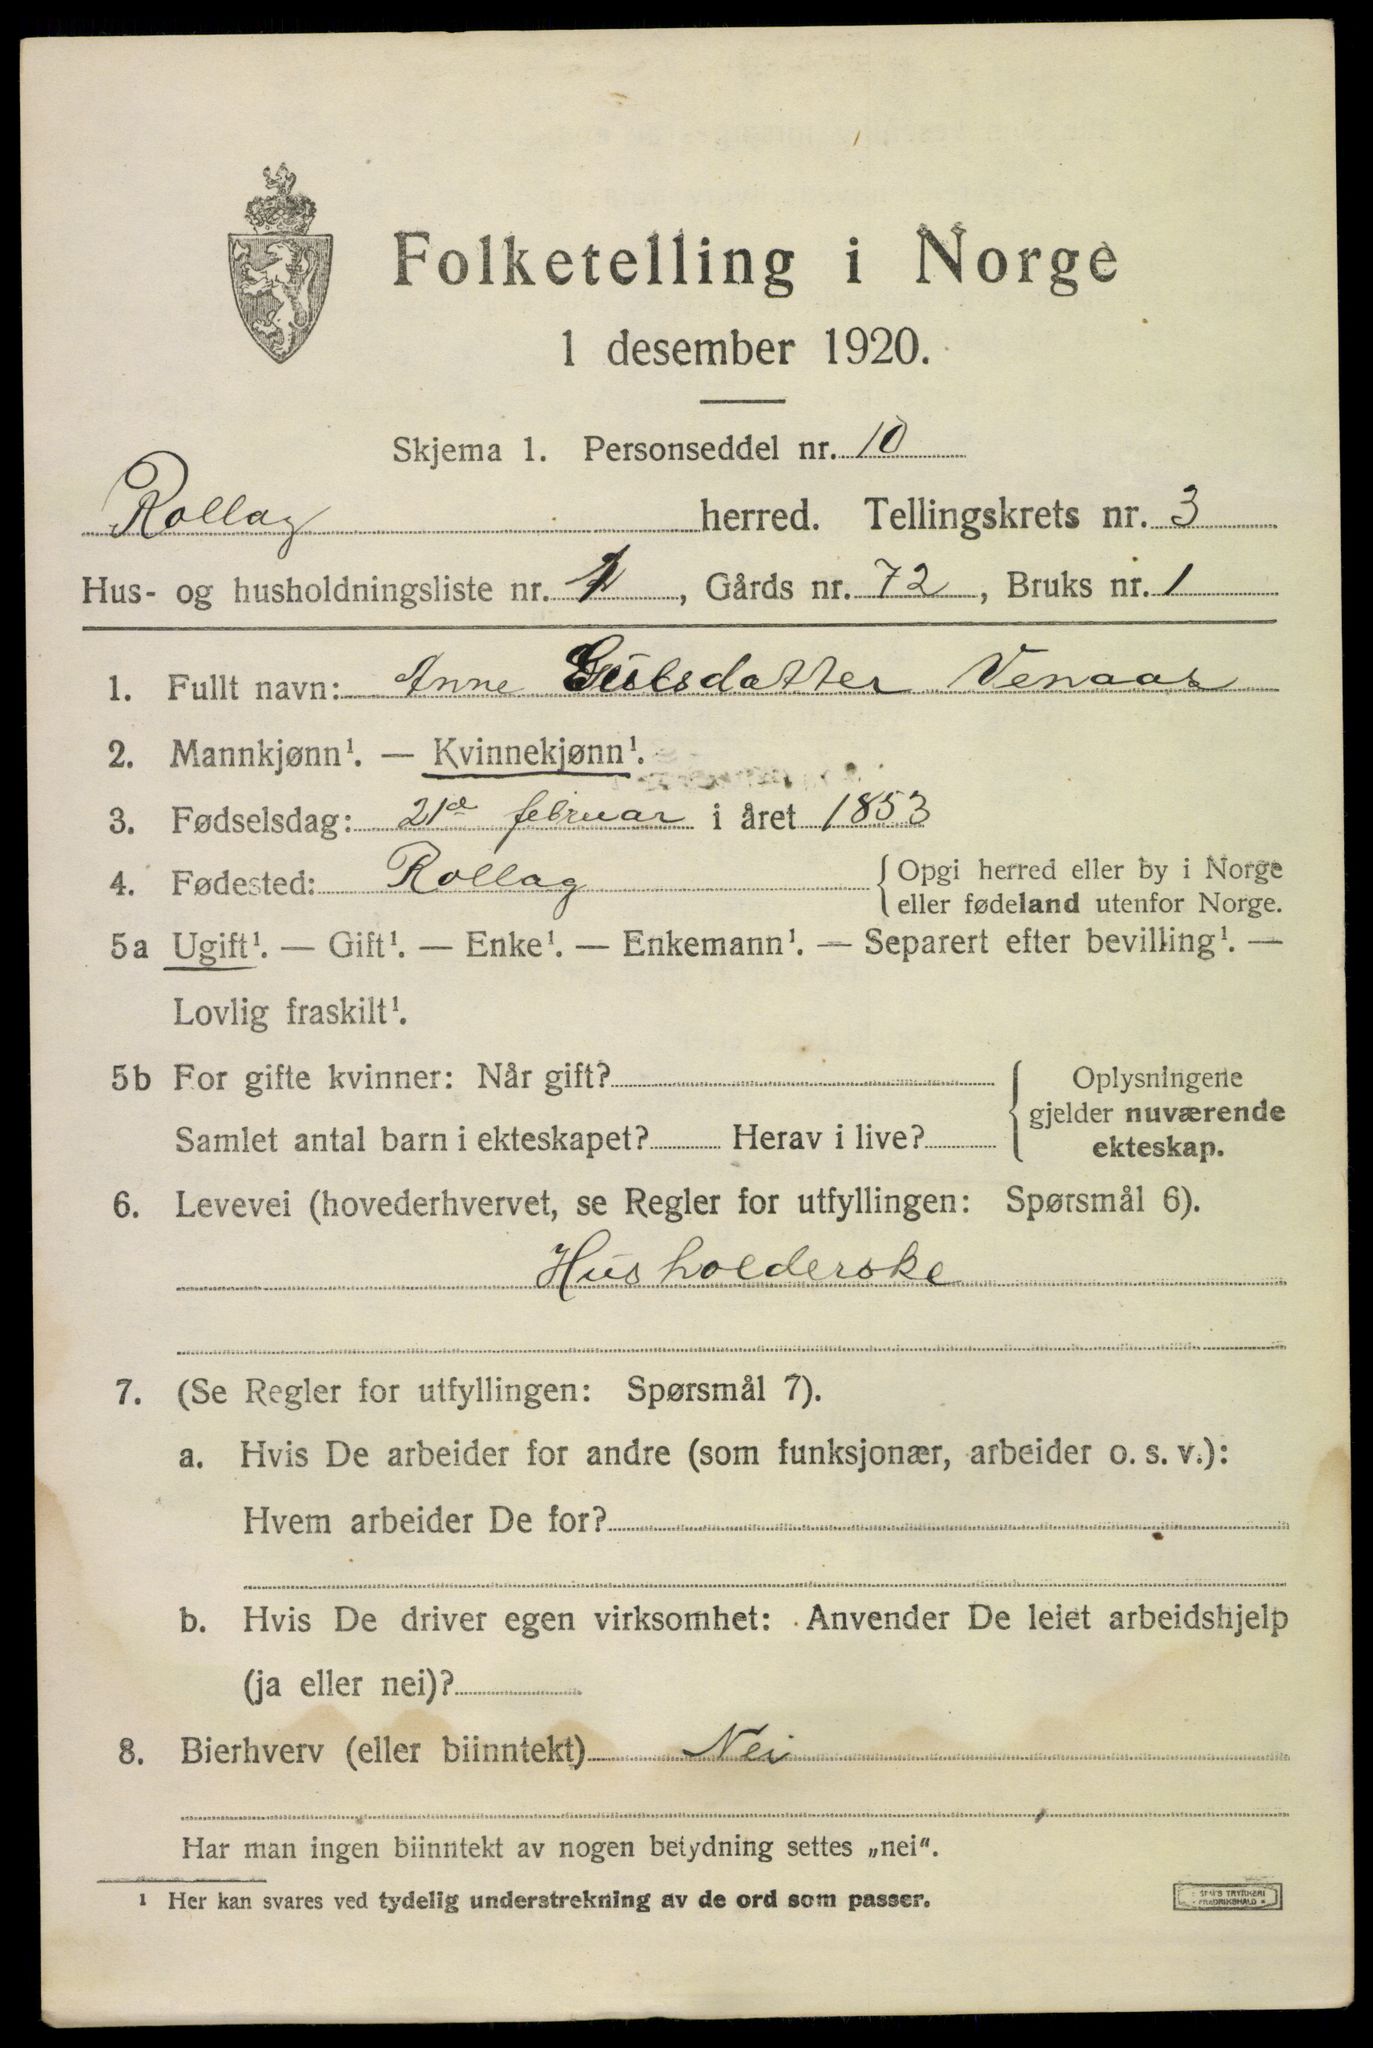 Folketelling i Norge
1 desember 1920.
Skjema 1. Personseddel nr. 10
Rollag herred. Tellingskrets nr. 3
Hus- og husholdningsliste nr. , Gårds nr. 72, Bruks nr. 1
1. Fullt navn: Anne datter Venaas
2. Mannkjønn¹. — Kvinnekjønn¹.
3. Fødselsdag: 21de februar i året 1853
4. Fødested: Rollag {Opgi herred eller by i Norge
eller fødeland utenfor Norge.
5a Ugift¹. — Gift¹. — Enke¹. — Enkemann¹. — Separert efter bevilling¹. —
Lovlig fraskilt¹.
5b For gifte kvinner: Når gift? {Oplysningene
gjelder nuværende
Samlet antal barn i ekteskapet? Herav i live?
ekteskap.
6. Levevei (hovederhvervet, se Regler for utfyllingen: Spørsmål 6).
Husholderske
7. (Se Regler for utfyllingen: Spørsmål 7).
a. Hvis De arbeider for andre (som funksjonær, arbeider o. s. v.):
Hvem arbeider De for?
b. Hvis De driver egen virksomhet: Anvender De leiet arbeidshjelp
(ja eller nei)?
8. Bierhverv (eller biinntekt) Nei
Har man ingen biinntekt av nogen betydning settes „nei“.
¹ Her kan svares ved tydelig understrekning av de ord som passer.
TRYKKERI
FREDRIKSHALD